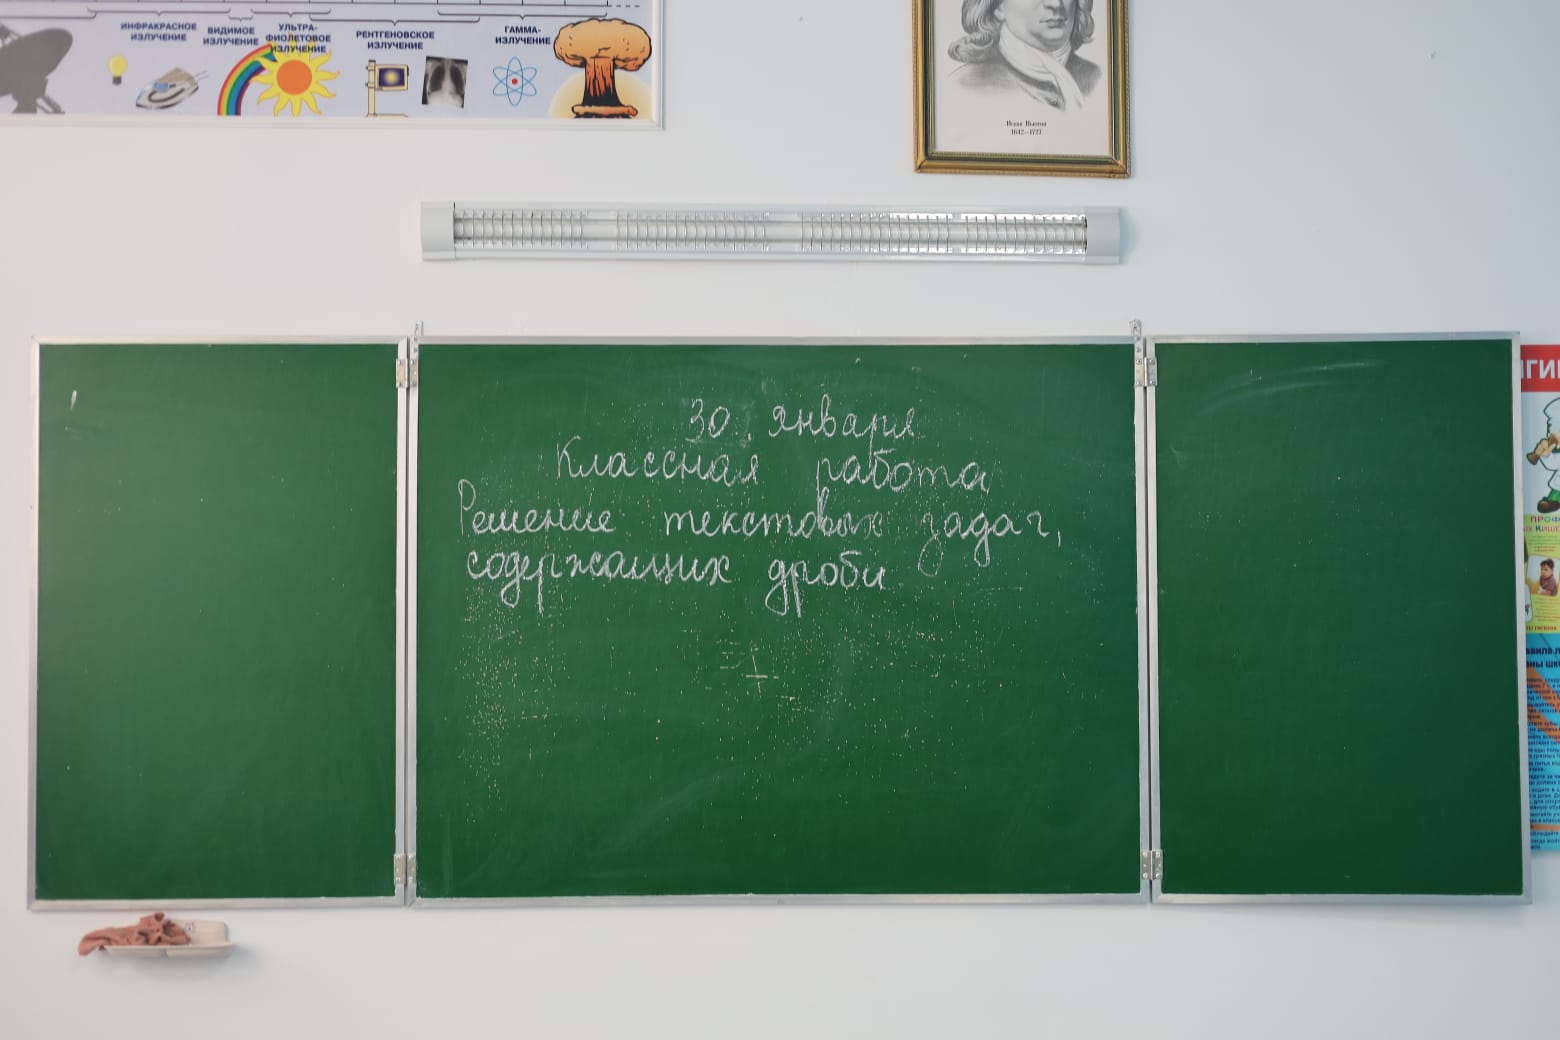 ИНФРАКРАСНОЕ
ИЗЛУЧЕНИЕ
ВИДИМОЕ
ИЗЛУЧЕНИЕ
УЛЬТРА-
ФИОЛЕТОВОЕ
ИЗЛУЧЕНИЕ
РЕНТГЕНОВСКОЕ
ИЗЛУЧЕНИЕ
ГАММА-
ИЗЛУЧЕНИЕ
Исаак Ньютон
1642—1727
30 января
Классная работа
Решение текстовых задач,
содержащих дроби